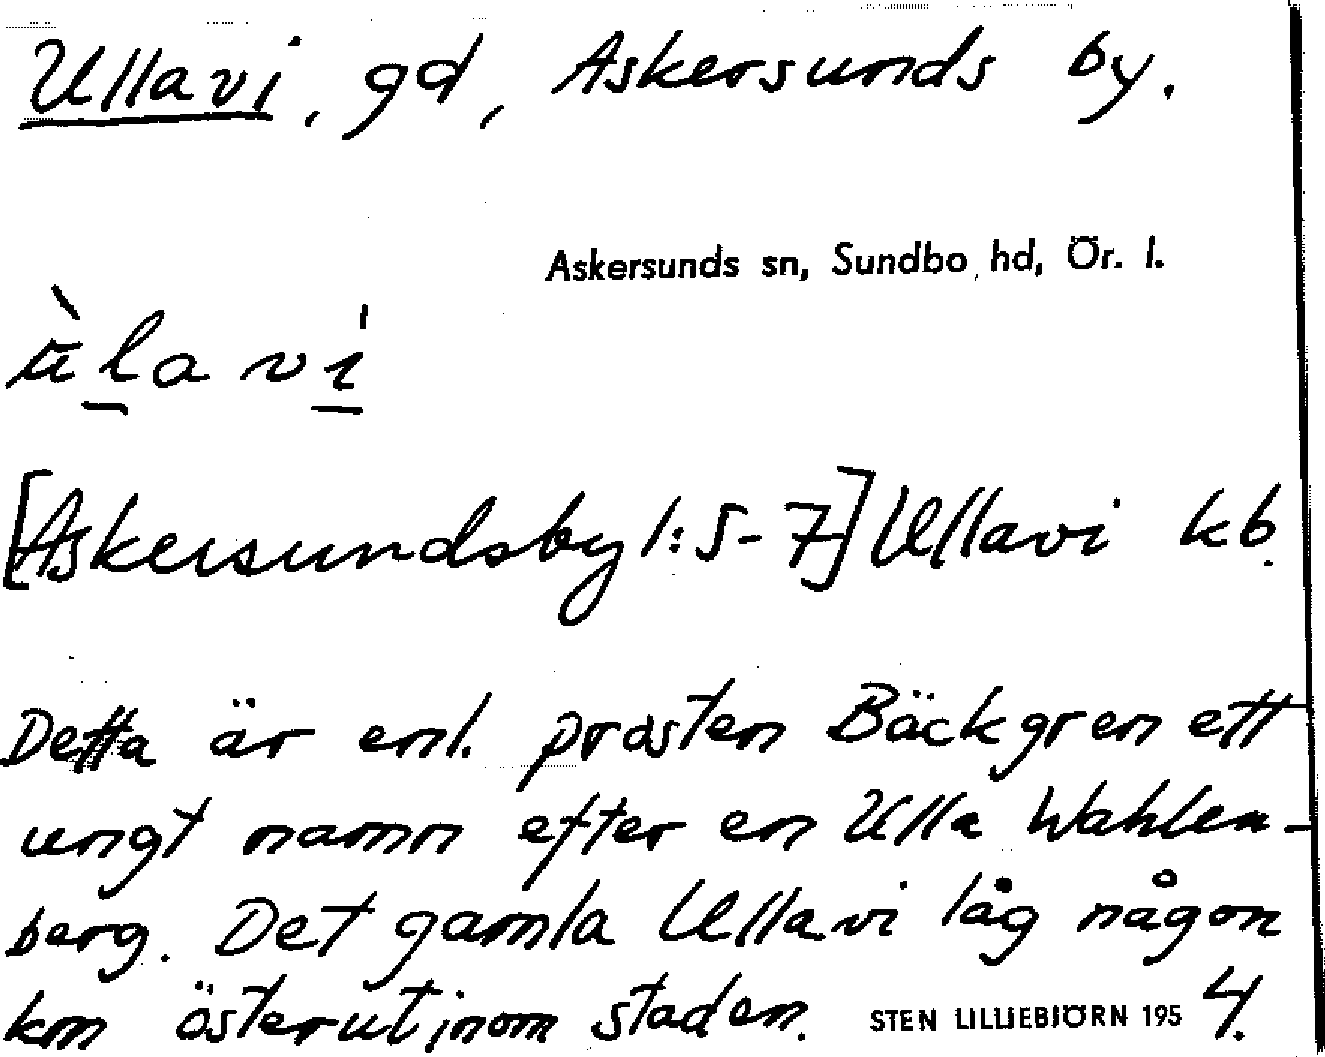 Ullavi, gd, Askersunds by.
Askersunds sn, Sundbo hd, Ör. l.
ùlaví
[Askersundsby 1:5-7] Ullavi kb.
Detta är enl. prosten Bäckgren ett
ungt namn efter en Ulla Wahlen-
berg. Det gamla Ullavi låg någon
km österut inom staden.
STEN LILLIEBJÖRN 1954.